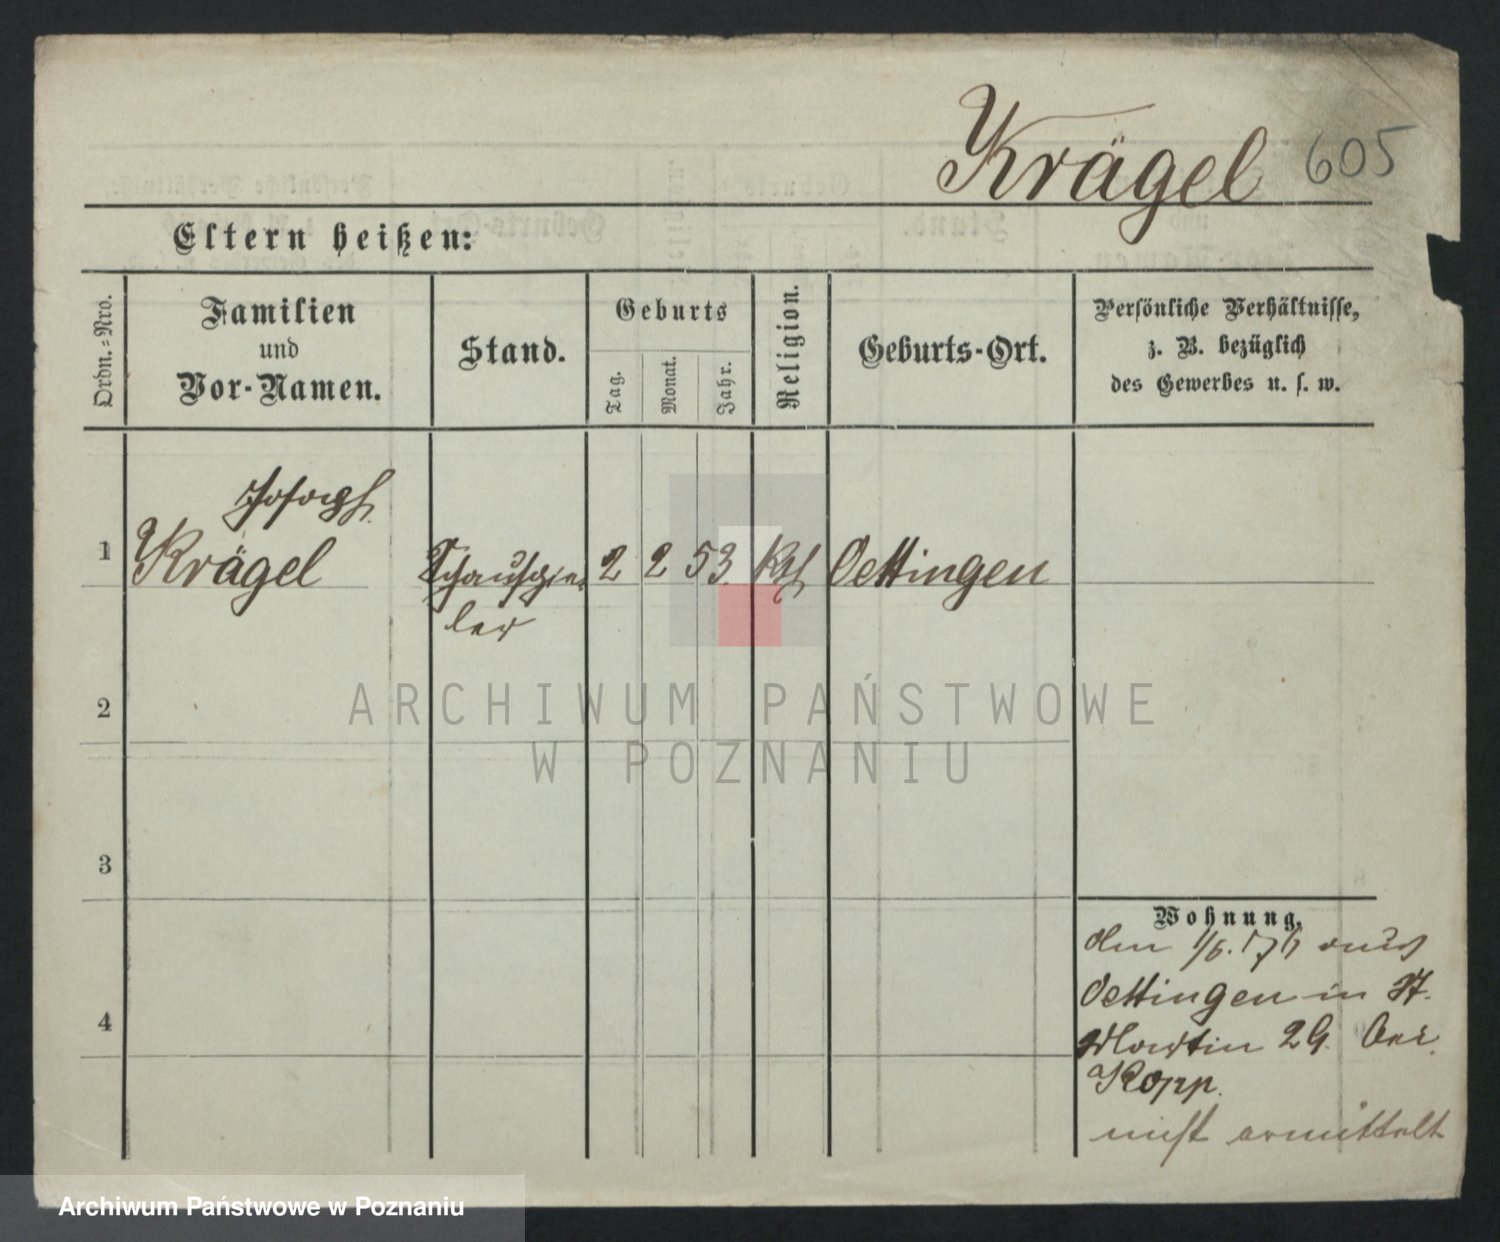 Krägel 605
Eltern heißen:
Ordn.=Nro.
Familien
und
Vor-Namen.
Stand.
Geburts
Tag.
Monat.
Jahr.
Religion.
Geburts-Ort.
Persönliche Verhältnisse,
z. B. bezüglich
des Gewerbes u. s. w.
Joseph
1 Krägel Schauspie- 2 2 53 kth Oettingen
ler
2
3
4
Wohnung.
den 1/6. 76 aus
Oettingen in St.
Martin 29. bei
Kopp.
nicht ermittelt
ARCHIWUM PAŃSTWOWE
W POZNANIU
Archiwum Państwowe w Poznaniu